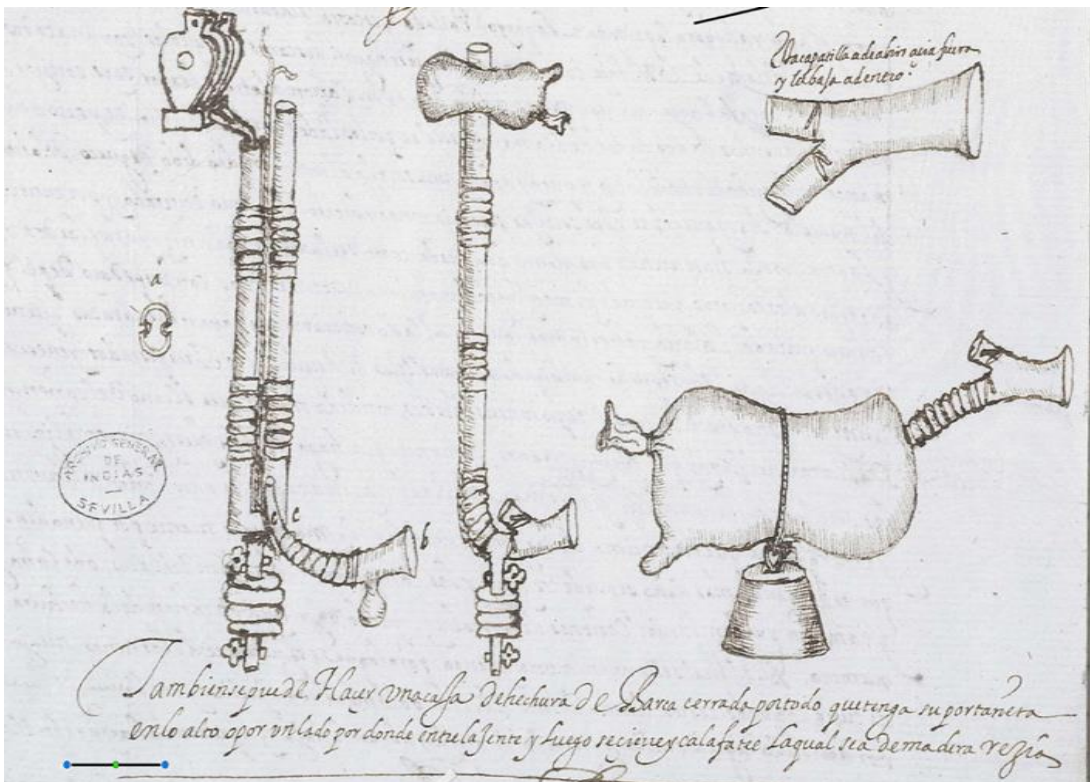 a
la çapatilla a de abrir açia fuera
y la baja adentro
b
c
ARCHIVO GENERAL
DE
INDIAS
SEVILLA
Tambien se puede Hacer Vna cassa de hechura de Barca cerrada por todo que tenga su portañera
en lo alto o por vn lado por donde entre la Jente y Luego se cierre y calafatee La qual sea de madera rezia